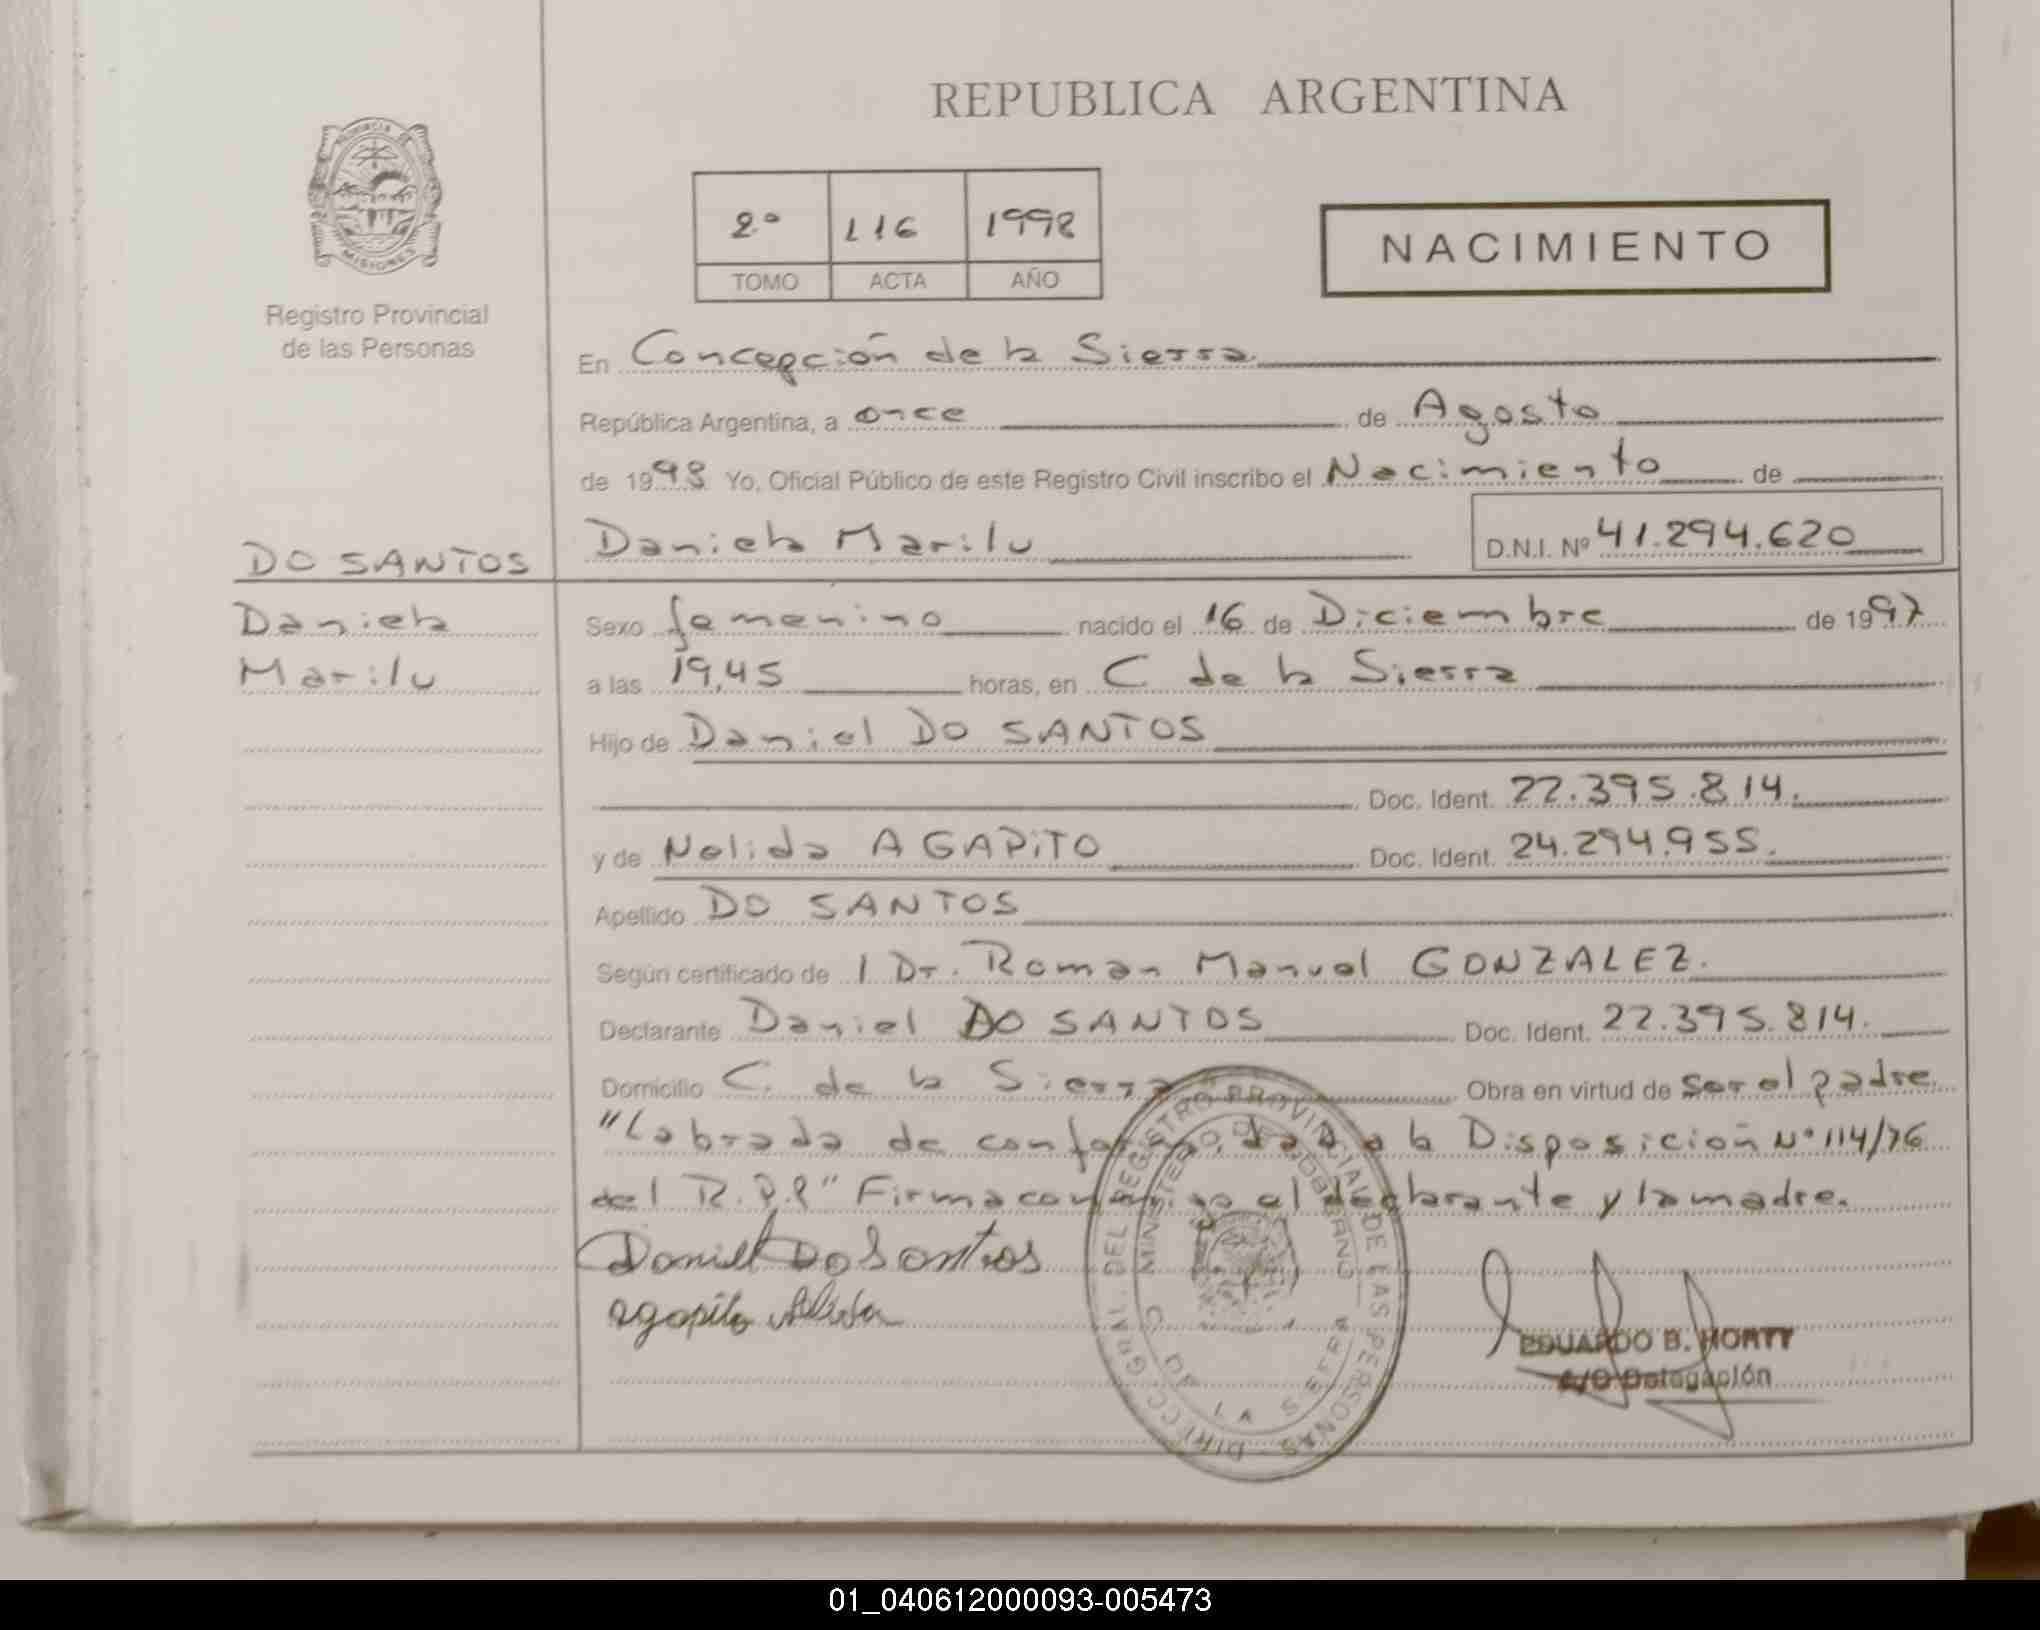 REPUBLICA ARGENTINA
PROVINCIA DE
MISIONES
Registro Provincial
de las Personas
2º 116 1998
TOMO ACTA AÑO
NACIMIENTO
En Concepción de la Sierra
República Argentina, a once de Agosto
de 1998 Yo, Oficial Público de este Registro Civil inscribo el Nacimiento de
Daniela Marilu D.N.I. Nº 41.294.620
DO SANTOS
Daniela
Marilu
Sexo femenino nacido el 16 de Diciembre de 1997
a las 19,45 horas, en C de la Sierra
Hijo de Daniel DO SANTOS
Doc. Ident. 22.395.814.
y de Nelida AGAPiTO Doc. Ident. 24.294.955.
Apellido DO SANTOS
Según certificado de 1 Dr. Roman Manuel GONZALEZ.
Declarante Daniel DO SANTOS Doc. Ident. 22.395.814.
Domicilio C. de la Sierra Obra en virtud de ser el padre
"Labrada de conformidad a la Disposición Nº 114/76
del R.P.P" Firma conmigo el declarante y la madre.
Daniel Do Santos
agapito Nelida
DIRECC. GRAL. DEL REGISTRO PROVINCIAL DE LAS PERSONAS
MINISTERIO DE GOBIERNO
C. DE LA SIERRA
EDUARDO B. HORTT
A/C Delegación
01_040612000093-005473